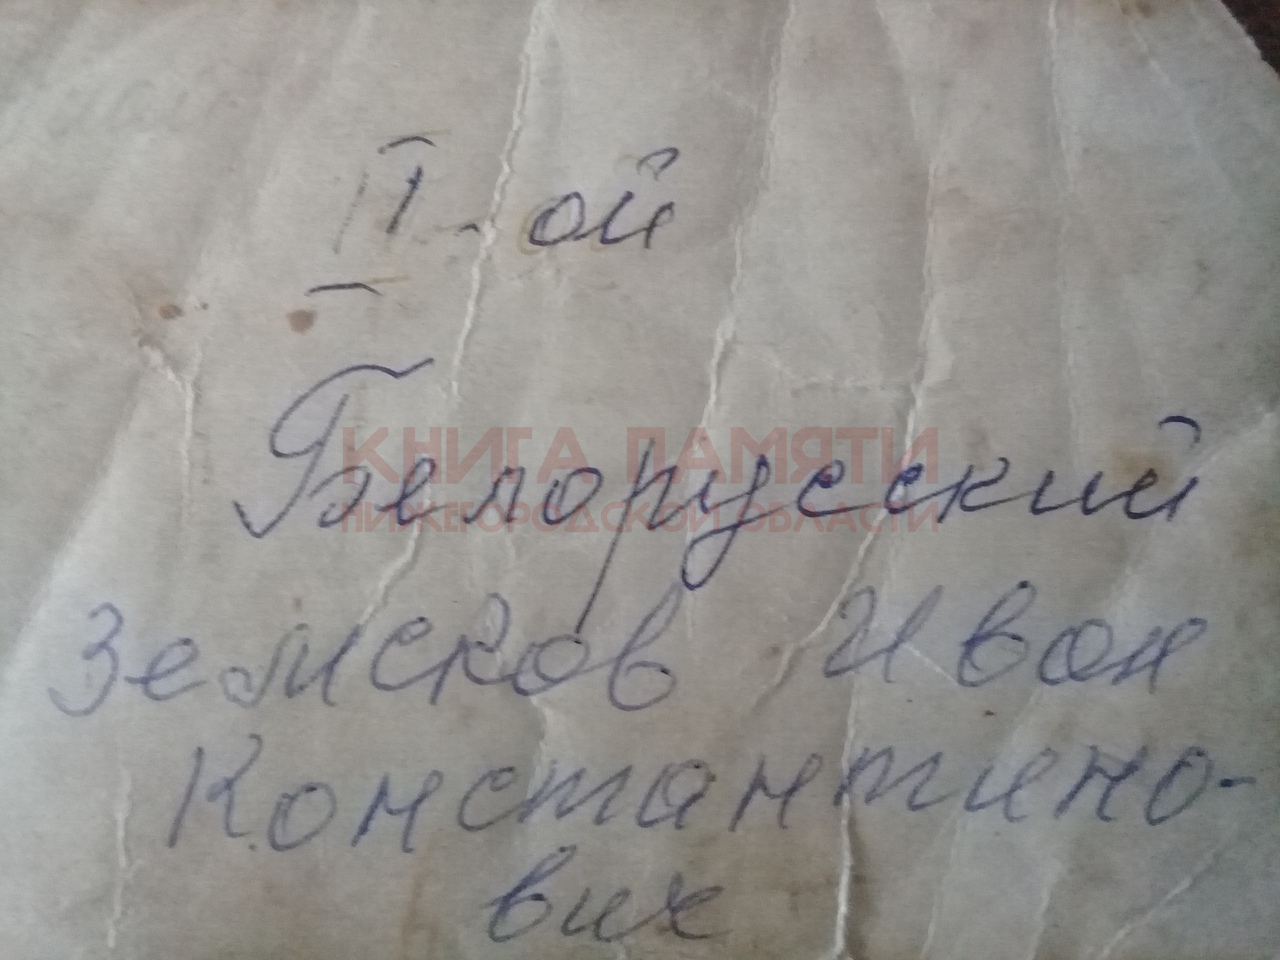 II-ой
Белорусский
КНИГА ПАМЯТИ
НИЖЕГОРОДСКОЙ ОБЛАСТИ
Земсков Иван
Константино-
вич